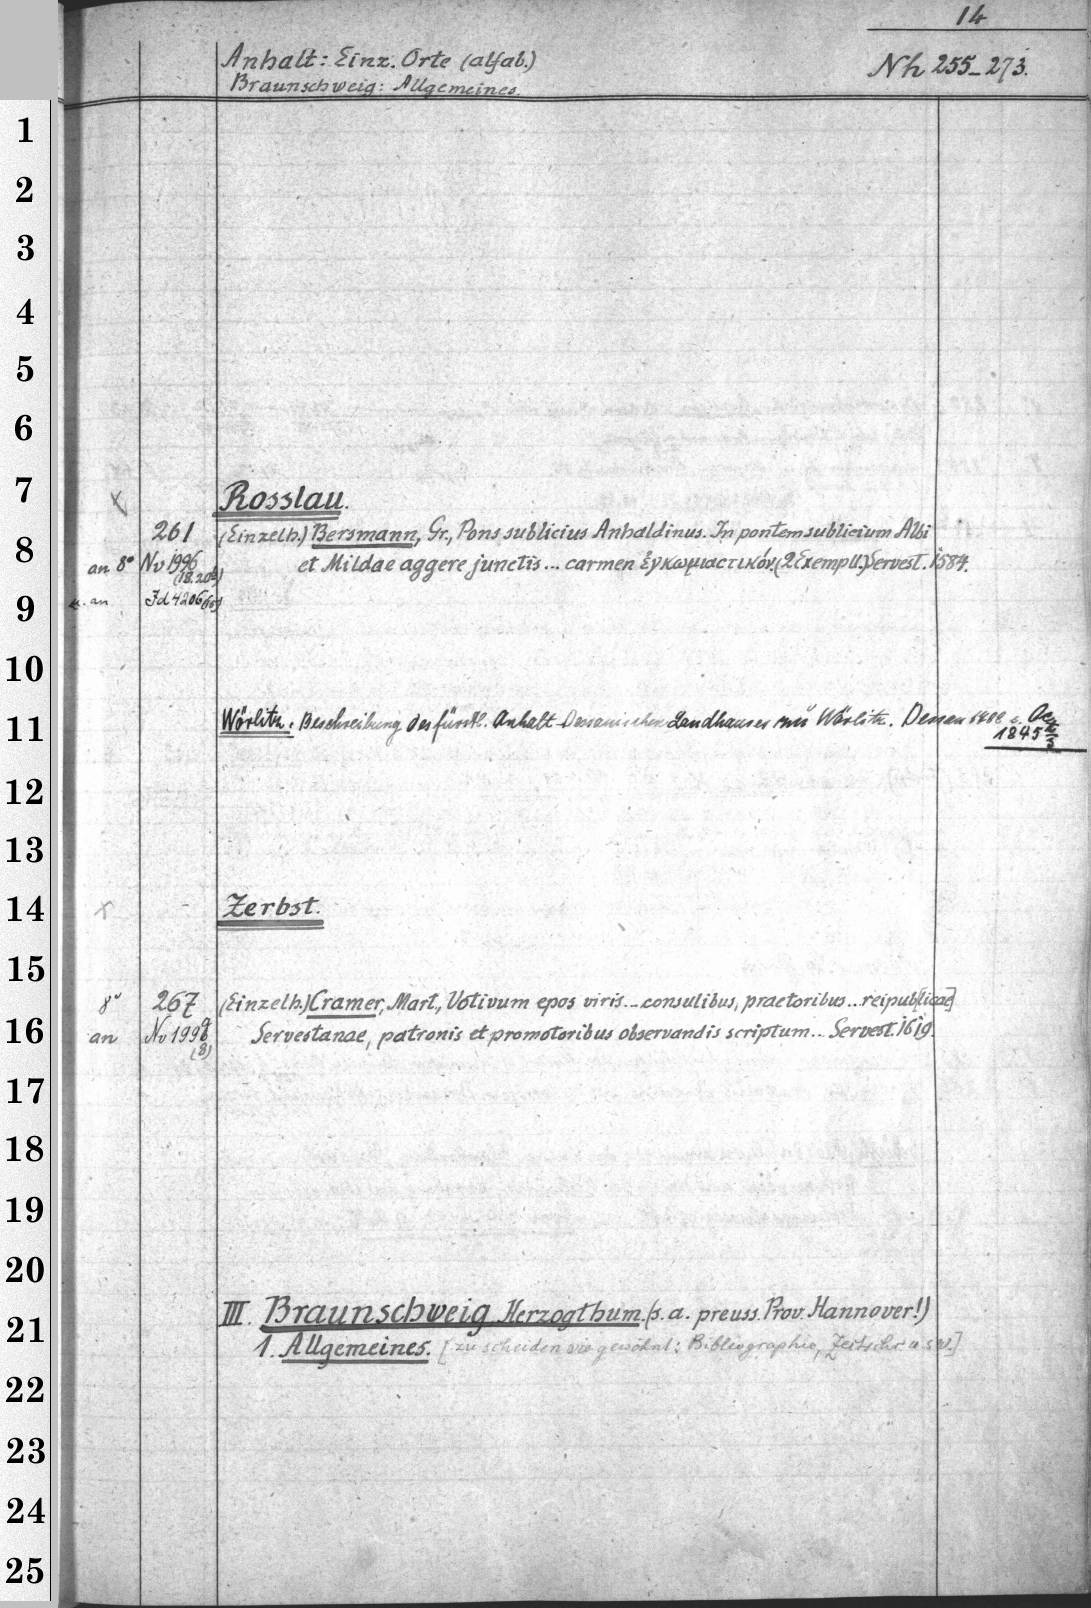 14
Anhalt: Einz. Orte (alfab.) Nh 255-273.
Braunschweig: Allgemeines.
1
2
3
4
5
6
7 Rosslau.
261 (Einzelh.) Bersmann, Gr., Pons sublicius Anhaldinus. In pontem sublicium Albi
8 an 8° Nv 1996 et Mildae aggere junctis... carmen ἐγκωμιαστικόν. (2 Exempll.) Servest. 1584.
(18.20b)
9 u. an Jd 4206
10
11 Wörlitz. Beschreibung des fürstl. Anhalt-Dessauischen Landhauses zu Wörlitz. Dessau
1845
12
13
14 Zerbst.
15
8° 267 (Einzelh.) Cramer, Mart., Votivum epos viris... consulibus, praetoribus... reipub[licae]
16 an Nv 1998 Servestanae, patronis et promotoribus observandis scriptum... Servest. 1619.
(8)
17
18
19
20
21 III. Braunschweig Herzogthum. (s. a. preuss. Prov. Hannover!)
1. Allgemeines. [zu scheiden wie gewöhnl: Bibliographie, Zeitschr. u s w.]
22
23
24
25